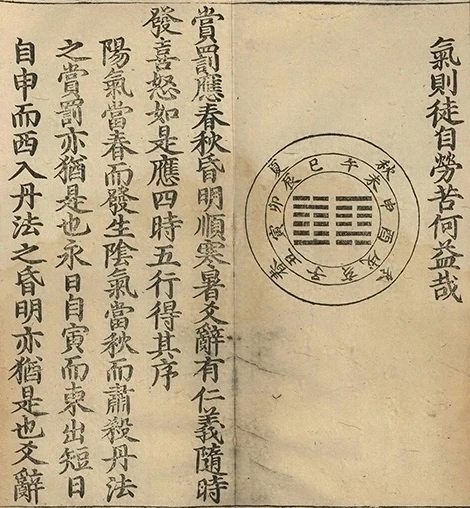 氣則徒自勞苦何益哉
春夏秋冬
子丑寅卯辰巳午未申酉戌亥
賞罰應春秋昏明順寒暑爻辭有仁義隨時
發喜怒如是應四時五行得其序
陽氣當春而發生陰氣當秋而肅殺丹法
之賞罰亦猶是也永日自寅而東出短日
自申而西入丹法之昏明亦猶是也爻辭